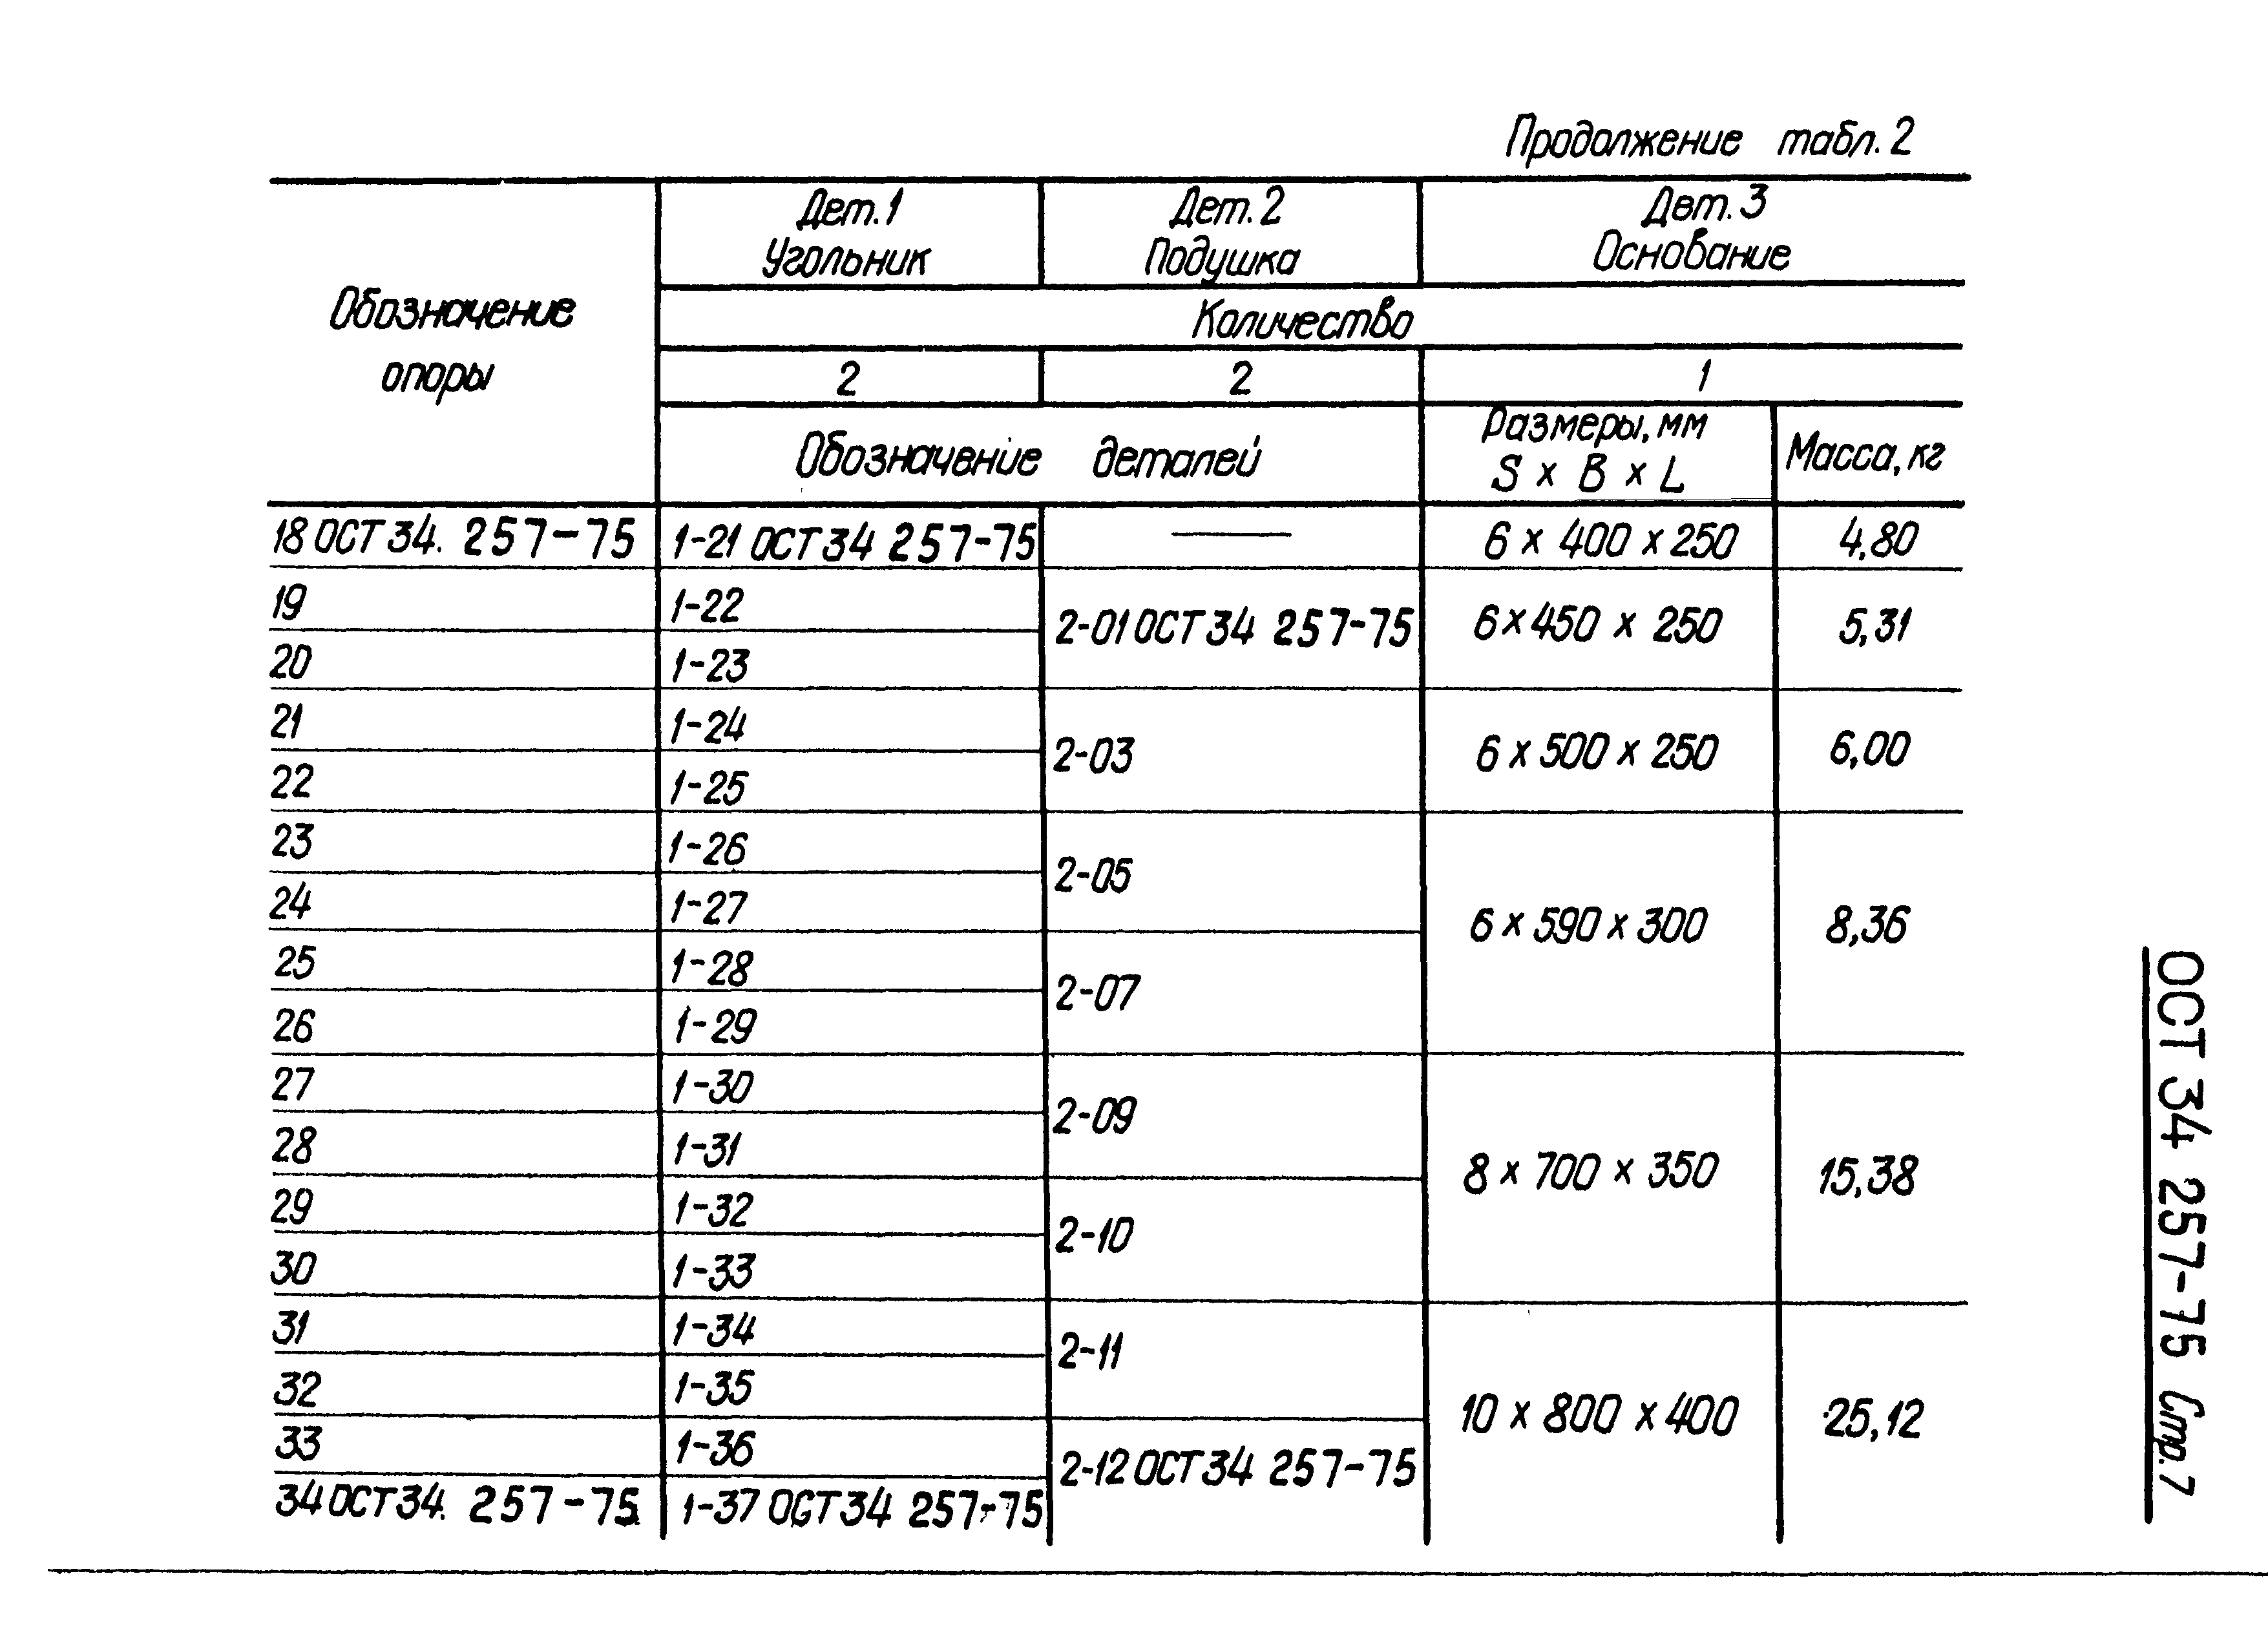 Продолжение табл. 2
Обозначение опоры
Дет. 1 Угольник
Дет. 2 Подушка
Дет. 3 Основание
Количество
2 2 1
Обозначение деталей
Размеры, мм S x B x L
Масса, кг
18 ОСТ 34. 257-75 1-21 ОСТ 34 257-75 — 6 x 400 x 250 4,80
19 1-22 2-01 ОСТ 34 257-75 6 x 450 x 250 5,31
20 1-23
21 1-24 2-03 6 x 500 x 250 6,00
22 1-25
23 1-26 2-05 6 x 590 x 300 8,36
24 1-27
25 1-28 2-07
26 1-29
27 1-30 2-09 8 x 700 x 350 15,38
28 1-31
29 1-32 2-10
30 1-33
31 1-34 2-11 10 x 800 x 400 25,12
32 1-35
33 1-36 2-12 ОСТ 34 257-75
34 ОСТ 34. 257-75 1-37 ОСТ 34 257-75
ОСТ 34 257-75 Стр. 7